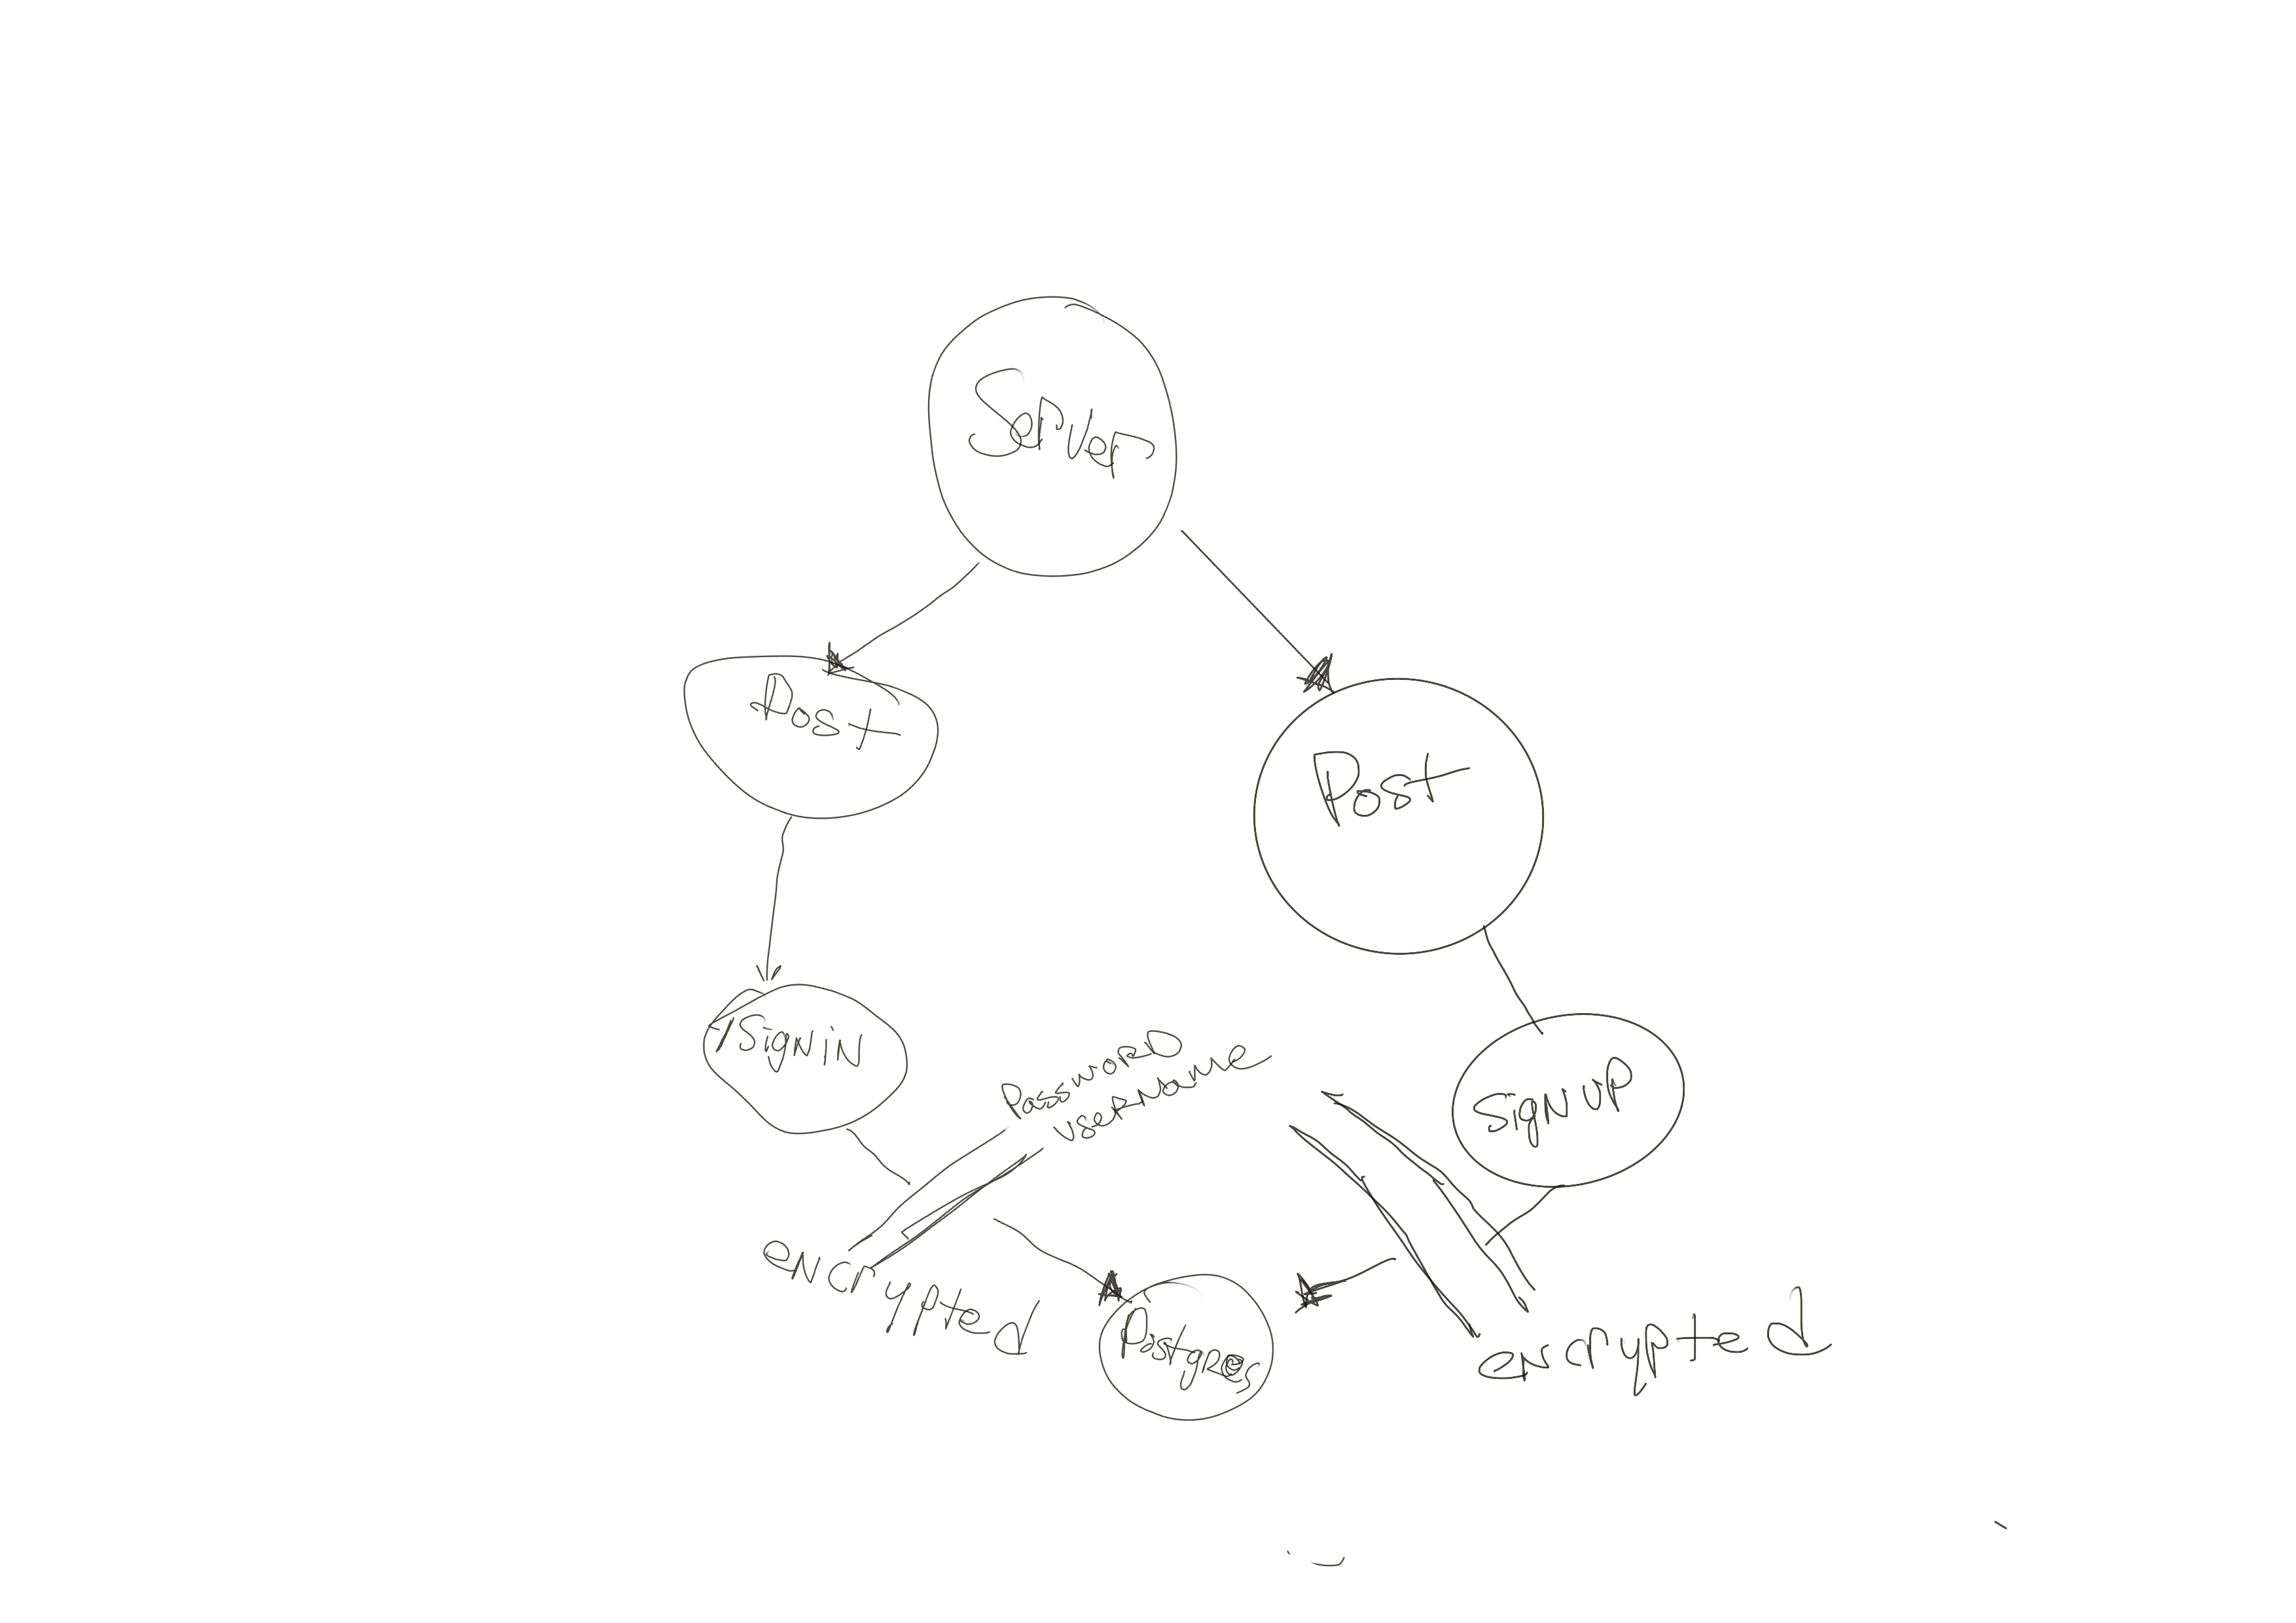 Server
Post
Post
/Signin
Password
username
Signup
encrypted
Postgres
encrypted